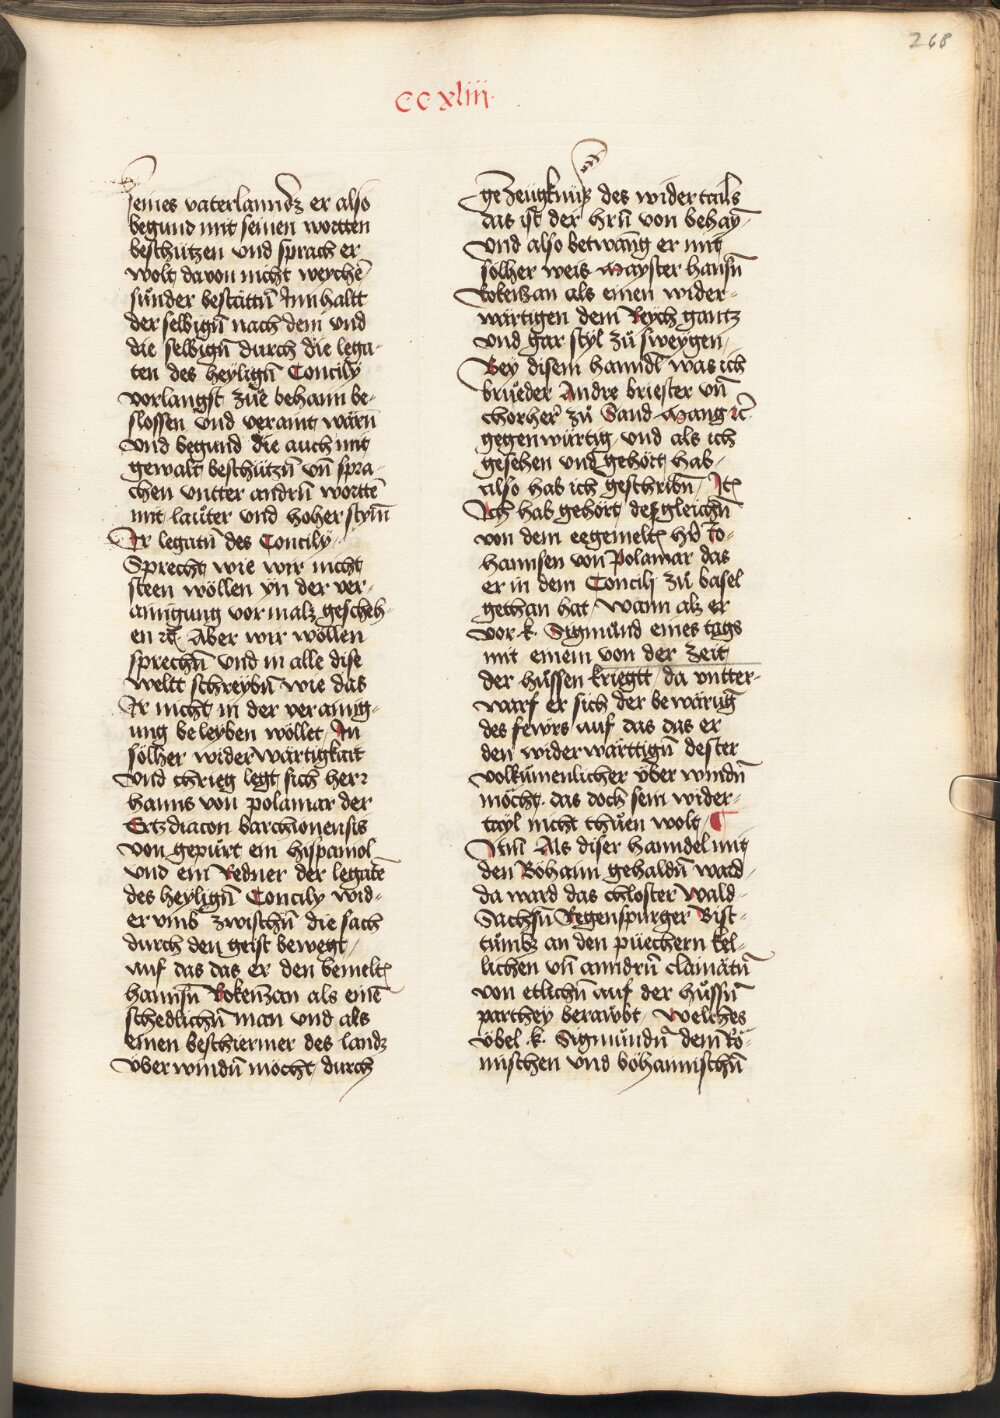 268
CCxliii
seines vaterlanndz er also
begund mit seinen wortten
beschützen und sprach er
wolt davon nicht weychē
sünder bestättn̄ Innhaltt
der selbign̄ nach dem und
die selbign̄ durch die lega-
ten des heylign̄ Concily
vorlangst zůe behann be-
slossen und veraint wärn̄
Und begund die auch mit
gewalt beschützn̄ vn̄ spra-
chen vntter andrn̄ wortte
mit lautter und hoher stym̄
Ir legatn̄ des Concily
Sprecht wie wir nicht
steen wöllen yn der ver-
ainigung vormalz gescheh-
en rc̄ Aber wir wöllen
sprechn̄ und in alle dise
weltt schreybn̄ wie das
Ir nicht in der veraing-
ung beleyben wöllet / In
sölher widerwärtigkait
und chrieg legt sich herr
hanns von polamar der
Ertzdiacon barchionensis
von gepürt ein hispaniol
und ein Redner der legatē
des heylign̄ Concily wid-
er umb zwischn̄ die sach
durch den geist bewegt /
auf das das er den bemeltē
hannsn̄ Rokenzan als einē
schedlichn̄ man und als
einen beschiermer des landz
überwindn̄ möcht / durch
gezeugknüs des widertails
das ist der hrn̄ von behay-
Und also betwang er mit
sölher weis Mayster hansn̄
Rokenzan als einen wider-
wärtigen dem Reych gantz
und gar styl zů sweygen /
Bey disem hanndl was ich
brueder Andre briester vn̄
chorher zů Sand Mang rc̄
gegenwürtig und als ich
gesehen und gehört hab
also hab ich geschribn̄ / Itē
Ich hab gehört desgleichn̄
von dem eegemeltē hr̄n Jo-
hannsen von Polamar das
er in dem Concilj zů basel
gethan hat / wann alz er
vor .k. Sigmund eines tags
mit einem von der zeit
der hussen kriegtt / da vntter-
warf er sich der bewärūg
des fewrs auf das das er
den widerwärttign̄ dester
volkumenlicher über windn̄
möcht. das doch sein wider-
tayl nicht thuen wolt / ¶
Itm̄ Als diser hanndel mit
den Böhann gehaldn̄ ward
da ward das chloster Wald-
Sachsn̄ Regenspurger Bist-
tumbs an den püechern kel-
lichen vn̄ anndrn̄ clainätn̄
von etlichn̄ auf der hussn̄
parthey beraubt / welches
übel .k. Sigmundn̄ dem Rö-
mischen und böhannischn̄